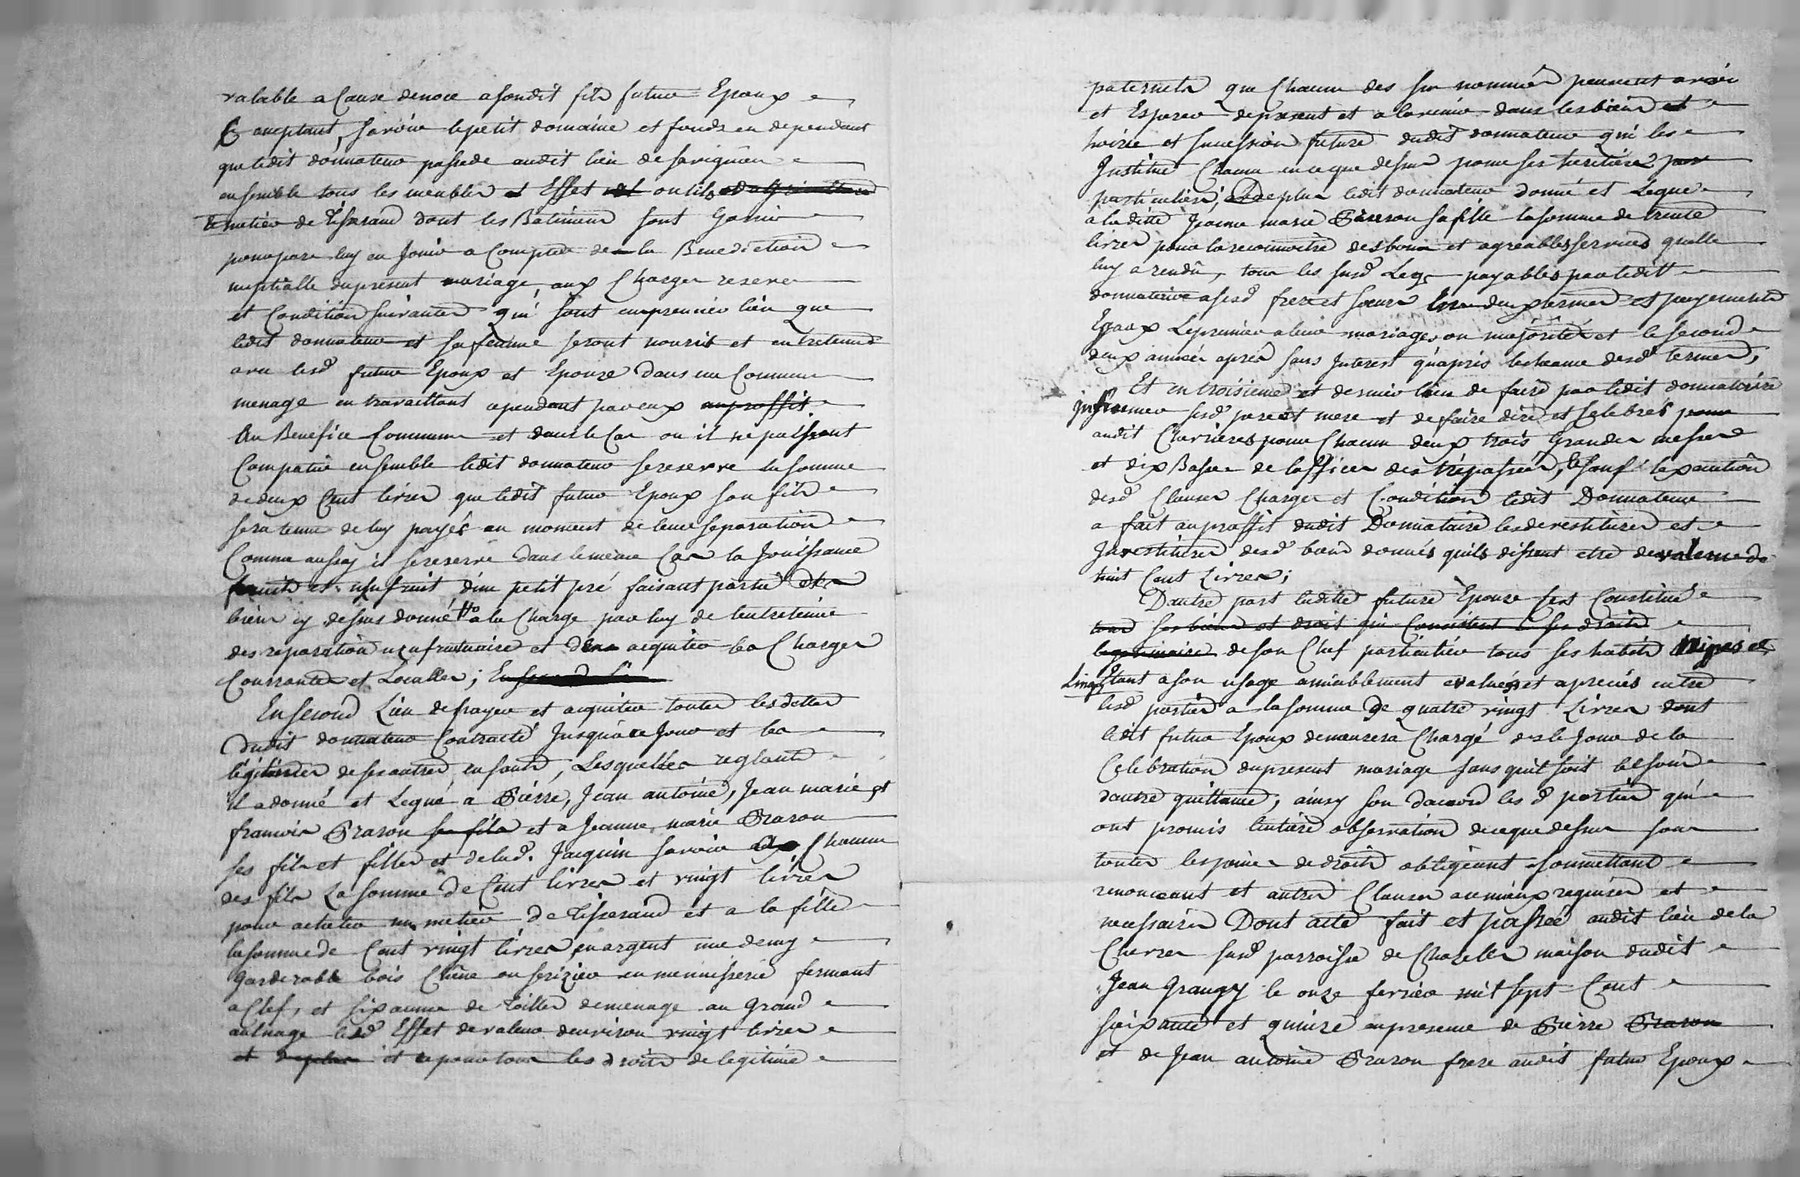 valable a Cause denoce asondit fils futur Epoux
acceptant, savoir lepetit domaine et fonds en dependant
queledit donnateur possede audit lieu de savigneux
ensemble tous les meubles et Effet outils
metier de Tisserand dont les Batiment sont Garnie
pour par luy en Jouir a Compter de la Benediction
nuptialle dupresent mariage, aux Charges reserve
et Condition suivantes qui sont enpremier lieu que
ledit donnateur et sa femme seront nourit et entretenus
avec lesd. futur Epoux et Epouze dans un Commun
menage en travaillant cependant par eux auproffit
Au Benefice Commun et dans le Cas ou il ne puissent
Compatir ensemble ledit donnateur sereserve la somme
de deux Cent livres que ledit futur Epoux son fils
sera tenu de luy payér au moment de leur separation
Comme aussy il sereserve dans le meme Cas la Jouissance
et usufruit d'un petit pré faisant partie des
biens cy dessus donné a la Charge par luy de lentretenir
des reparation usufruituaire et den acquiter les Charges
Courrantes et Localles; En second Li
En second Lieu de payer et acquiter toutes les dettes
dudit donnateur Contracté Jusqu'a ce Jour et les
légitimes de ses autres enfants, Lesquelles reglant
il a donné et Legué a Pierre, Jean antoine, Jean marie et
francois Brason ses fils et a Jeanne marie Brason
ses fils et filles et de lad. Jacquin savoir a Chacun
des fils La somme de Cent livres et vingt livres
pour acheter un metier de Tisserand et a la fille
la somme de Cent vingt livres en argent une demy
garderobe bois Chene ou serizier en menuisserie fermant
a Clef, et six aunes de Toilles de menage au grand
aulnage lesd. Effet de valeur denviron vingt livres
et de plus et ce pour tous les droits de legitime
paternels que Chacun des sus nommés peuvent avoir
et Esperer de present et a lavenir dans les biens et
hoirie et succession future dudit donnateur qui les
Institue Chacun en ce que dessus pour ses heritiers
particuliers, De plus ledit donnateur donne et Legue
a laditte Jeanne marie Brason sa fille la somme de trente
livres pour la reconnoitre des bons et agreables services quelle
luy a rendû, tous les susd. Legs payables par ledit
donnataire a sesd. freres et soeurs En deux termes et payements
Egaux Le premier a leur mariage ou majorité et le second
deux années après sans Interest qu'apres lecheance desd. termes,
Et en troisieme et dernier lieu de faire par ledit donnataire
Inhumer sesd. pere et mere et de faire dire et selebrer
audit Cherrieres pour Chacun deux trois Grandes messes
et dix Basses de loffices des trépassés, sauf lexecution
desd. Clauses Charges et Condition ledit Donnateur
a fait auproffit dudit Donnataire les devestitures et
Investitures desd. biens donnés quils dissent etre de valeur de
huit Cent Livres;
Dautre part laditte future Epouze sest Constitué
tous ses biens et droit qui Consistent ses droits
legitimaire de son Chef particulier tous ses habits nipes et
Linges Tant a son usage amiablement evalués et apreciés entre
lesd. parties a la somme de quatre vingt Livres dont
ledit futur Epoux demeurera Chargé des le Jour de la
Celebration dupresent mariage sans quil soit besoin
dautre quittance, ainsy son daccord les d. parties qui
ont promis lentiere observation de ce que dessus sous
toutes les peines de droits obligeant soumettant
renoncant et autres Clauses au mieux requises et
necessaires Dont acte fait et passée audit lieu de la
Cherzes susd. parroisse de Chazelles maison dudit
Jean Grangy le onze fevrier mil sept Cent
soixante et quinze enpresence de Pierre Brason
et de Jean antoine Brason frere audit futur Epoux